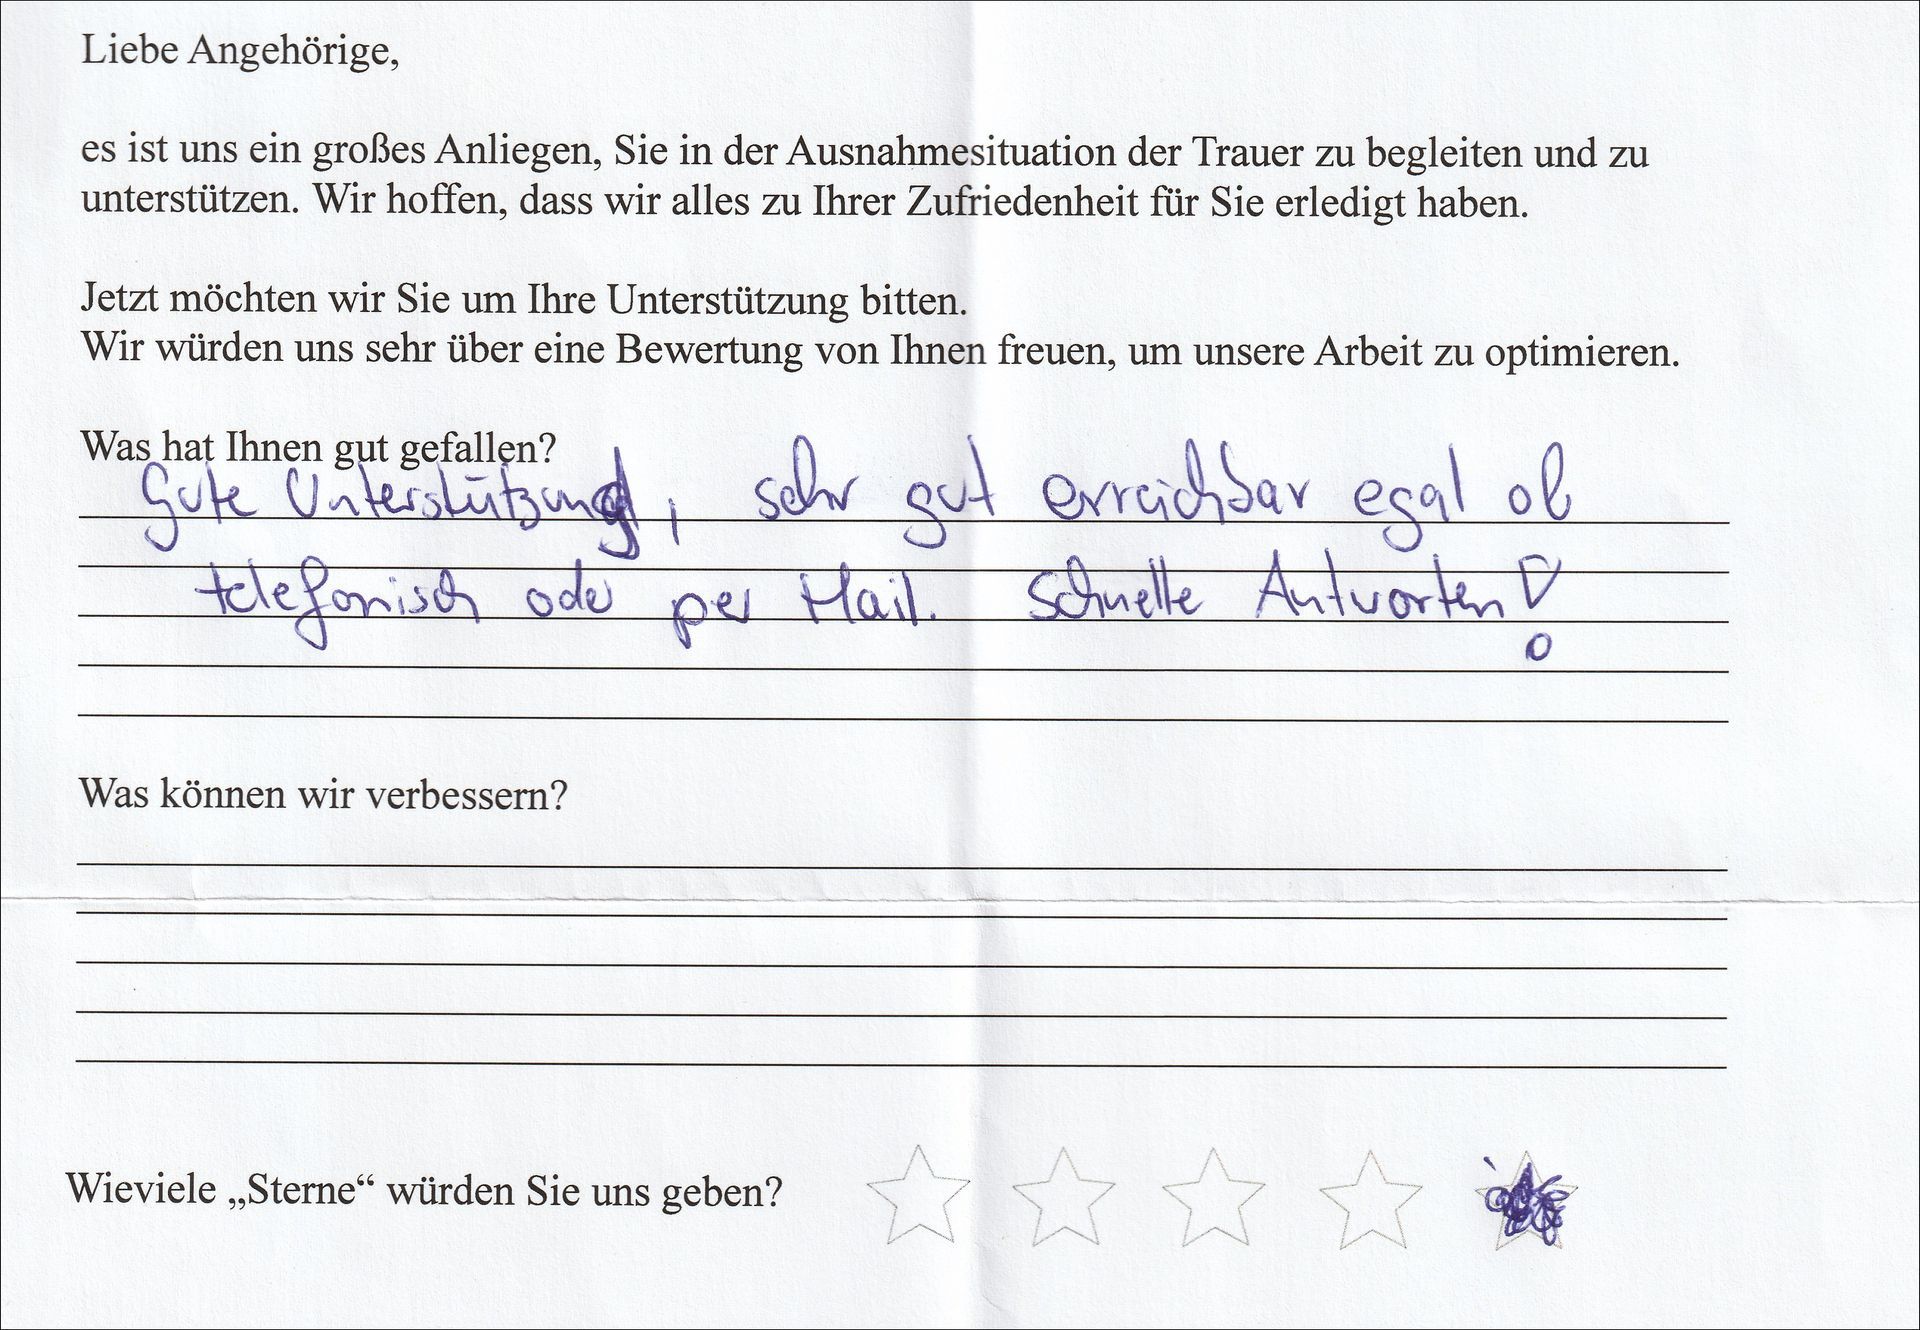 Liebe Angehörige,
es ist uns ein großes Anliegen, Sie in der Ausnahmesituation der Trauer zu begleiten und zu
unterstützen. Wir hoffen, dass wir alles zu Ihrer Zufriedenheit für Sie erledigt haben.
Jetzt möchten wir Sie um Ihre Unterstützung bitten.
Wir würden uns sehr über eine Bewertung von Ihnen freuen, um unsere Arbeit zu optimieren.
Was hat Ihnen gut gefallen?
Gute Unterstützung, sehr gut erreichbar egal ob
telefonisch oder per Mail. Schnelle Antworten!
Was können wir verbessern?
Wieviele „Sterne“ würden Sie uns geben?